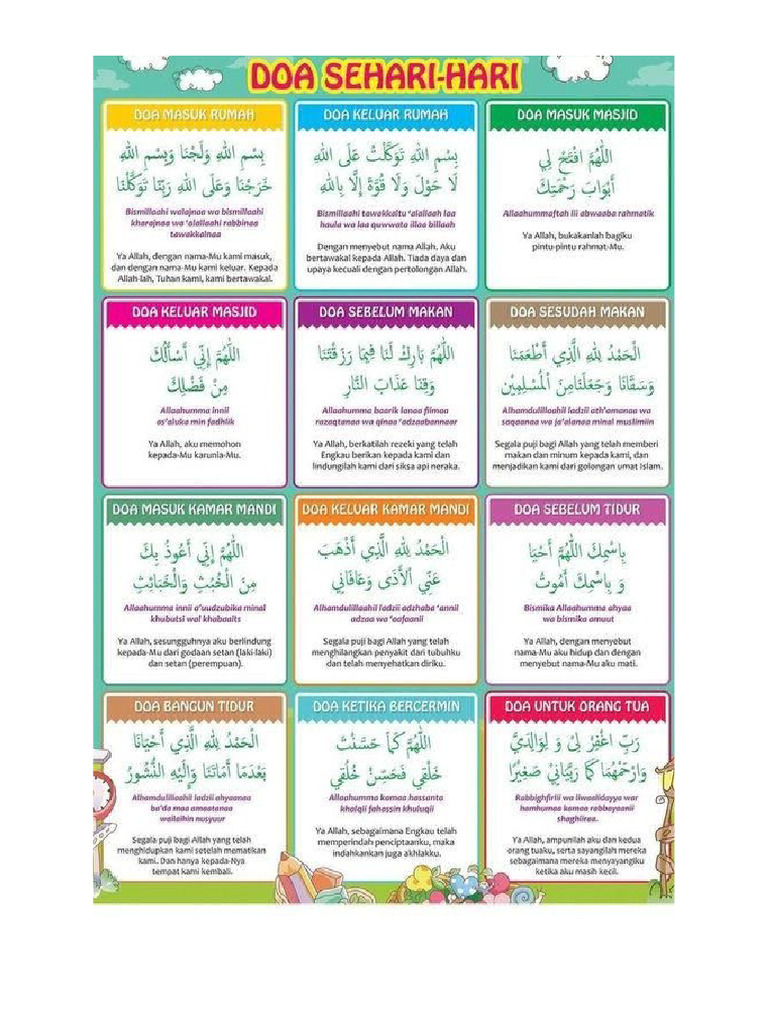 DOA SEHARI-HARI
DOA MASUK RUMAH
بِسْمِ اللهِ وَلَجْنَا وَبِسْمِ اللهِ
خَرَجْنَا وَعَلَى اللهِ رَبِّنَا تَوَكَّلْنَا
Bismillaahi walajnaa wa bismillaahi
kharajnaa wa 'alallaahi rabbinaa
tawakkalnaa
Ya Allah, dengan nama-Mu kami masuk,
dan dengan nama-Mu kami keluar. Kepada
Allah-lah, Tuhan kami, kami bertawakal.
DOA KELUAR RUMAH
بِسْمِ اللهِ تَوَكَّلْتُ عَلَى اللهِ
لَا حَوْلَ وَلَا قُوَّةَ إِلَّا بِاللهِ
Bismillaahi tawakkaltu 'alallaah laa
haula wa laa quwwata illaa billaah
Dengan menyebut nama Allah. Aku
bertawakal kepada Allah. Tiada daya dan
upaya kecuali dengan pertolongan Allah.
DOA MASUK MASJID
اللّٰهُمَّ افْتَحْ لِي
أَبْوَابَ رَحْمَتِكَ
Allaahummaftah lii abwaaba rahmatik
Ya Allah, bukakanlah bagiku
pintu-pintu rahmat-Mu.
DOA KELUAR MASJID
اللّٰهُمَّ إِنِّي أَسْأَلُكَ
مِنْ فَضْلِكَ
Allaahumma innii
as'aluka min fadhlik
Ya Allah, aku memohon
kepada-Mu karunia-Mu.
DOA SEBELUM MAKAN
اللّٰهُمَّ بَارِكْ لَنَا فِيمَا رَزَقْتَنَا
وَقِنَا عَذَابَ النَّارِ
Allaahumma baarik lanaa fiimaa
razaqtanaa wa qinaa 'adzaabannaar
Ya Allah, berkatilah rezeki yang telah
Engkau berikan kepada kami dan
lindungilah kami dari siksa api neraka.
DOA SESUDAH MAKAN
الْحَمْدُ لِلهِ الَّذِي أَطْعَمَنَا
وَسَقَانَا وَجَعَلَنَامِنَ الْمُسْلِمِيْن
Alhamdulillaahil ladzii ath'amanaa wa
saqaanaa wa ja'alanaa minal muslimiin
Segala puji bagi Allah yang telah memberi
makan dan minum kepada kami, dan
menjadikan kami dari golongan umat Islam.
DOA MASUK KAMAR MANDI
اللّٰهُمَّ إِنِّي أَعُوذُ بِكَ
مِنَ الْخُبُثِ وَالْخَبَائِثِ
Allaahumma innii a'uudzubika minal
khubutsi wal khabaaits
Ya Allah, sesungguhnya aku berlindung
kepada-Mu dari godaan setan (laki-laki)
dan setan (perempuan).
DOA KELUAR KAMAR MANDI
الْحَمْدُ لِلهِ الَّذِي أَذْهَبَ
عَنِّي الْأَذَى وَعَافَانِي
Alhamdulillaahil ladzii adzhaba 'annii
adzaa wa 'aafaanii
Segala puji bagi Allah yang telah
menghilangkan penyakit dari tubuhku
dan telah menyehatkan diriku.
DOA SEBELUM TIDUR
بِاسْمِكَ اللّٰهُمَّ أَحْيَا
وَ بِاسْمِكَ أَمُوتُ
Bismika Allaahumma ahyaa
wa bismika amuut
Ya Allah, dengan menyebut
nama-Mu aku hidup dan dengan
menyebut nama-Mu aku mati.
DOA BANGUN TIDUR
الْحَمْدُ لِلهِ الَّذِي أَحْيَانَا
بَعْدَمَا أَمَاتَنَا وَإِلَيْهِ النُّشُورُ
Alhamdulillaahil ladzii ahyaanaa
ba'da maa amaatanaa
wailaihin nusyuur
Segala puji bagi Allah yang telah
menghidupkan kami setelah mematikan
kami. Dan hanya kepada-Nya
tempat kami kembali.
DOA KETIKA BERCERMIN
اللّٰهُمَّ كَمَا حَسَّنْتَ
خَلْقِي فَحَسِّنْ خُلُقِي
Allaahumma kamaa hassanta
khalqii fahassin khuluqii
Ya Allah, sebagaimana Engkau telah
memperindah penciptaanku, maka
indahkankan juga akhlakku.
DOA UNTUK ORANG TUA
رَبِّ اغْفِرْ لِيْ وَ لِوَالِدَيَّ
وَارْحَمْهُمَا كَمَا رَبَّيَانِيْ صَغِيْرًا
Rabbighfirlii wa liwaalidayya war
hamhumaa kamaa rabbayaanii
shaghiiraa.
Ya Allah, ampunilah aku dan kedua
orang tuaku, serta sayangilah mereka
sebagaimana mereka menyayangiku
ketika aku masih kecil.